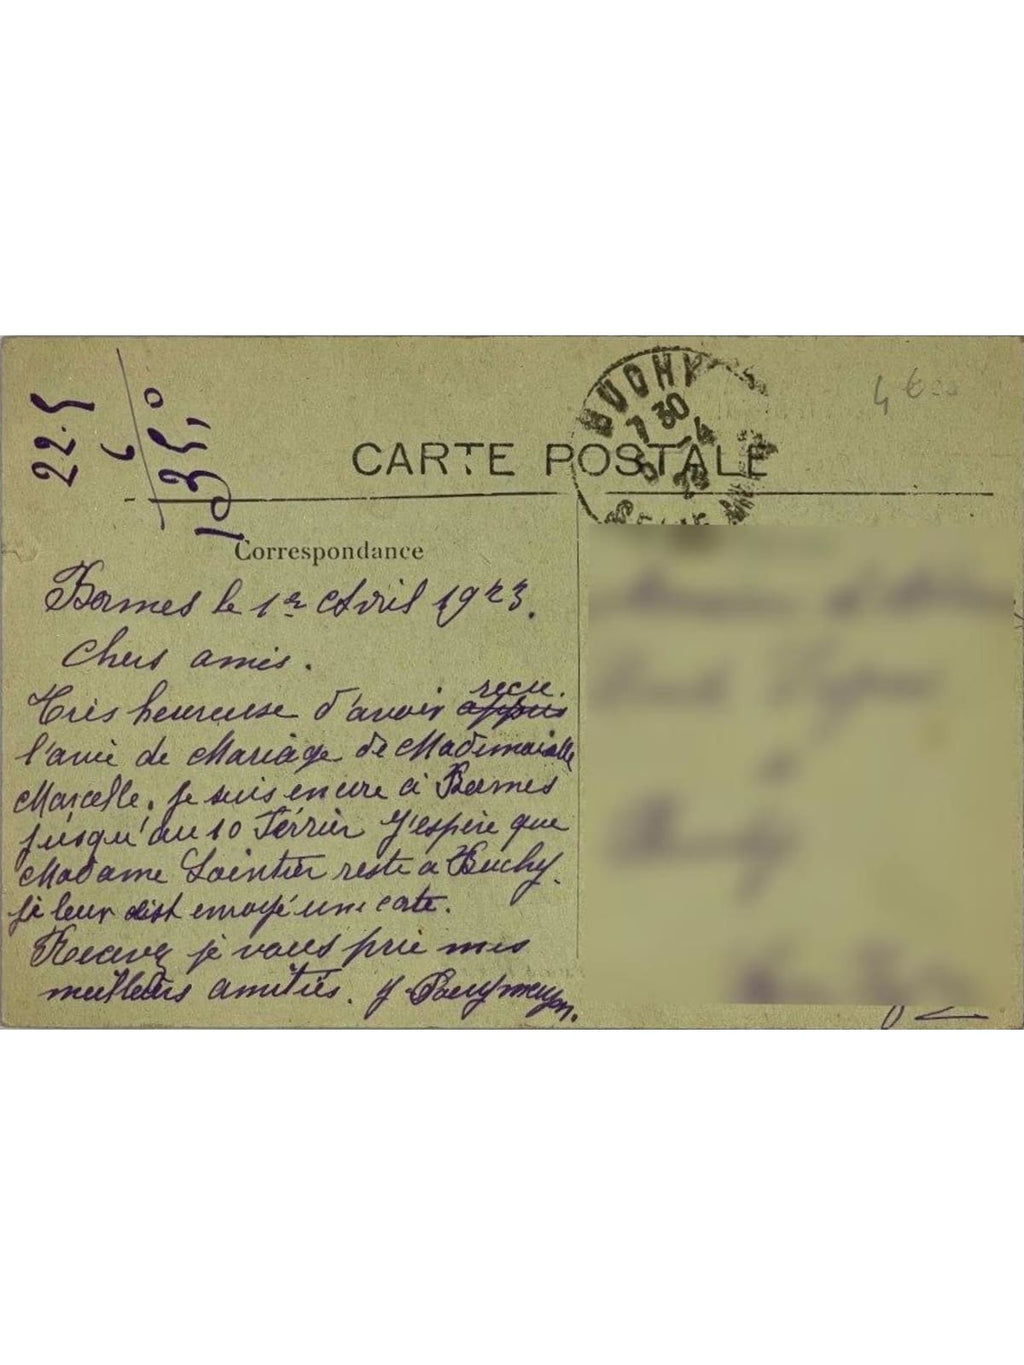 22.5
6
135,0
BUCHY
7 30
4
CARTE POSTALE
Correspondance
Bormes le 1er Avril 1923.
Chers amis.
Très heureuse d'avoir reçu.
l'avie de Mariage de Mademoiselle
Marcelle. je suis encore à Bormes
jusqu'au 10 Février J'espère que
Madame Saintier reste à Buchy.
je leur envoyé une carte.
Recevez je vous prie mes
meilleurs amitiés. y